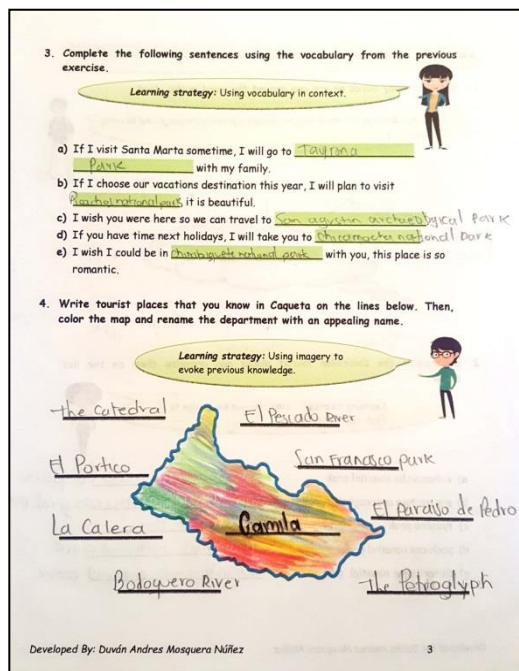 3. Complete the following sentences using the vocabulary from the previous
exercise.
Learning strategy: Using vocabulary in context.
a) If I visit Santa Marta sometime, I will go to Tayrona
Park with my family.
b) If I choose our vacations destination this year, I will plan to visit
national park, it is beautiful.
c) I wish you were here so we can travel to San agustin archaeological Park
d) If you have time next holidays, I will take you to chicamocha national Park
e) I wish I could be in chiribiquete national park with you, this place is so
romantic.
4. Write tourist places that you know in Caqueta on the lines below. Then,
color the map and rename the department with an appealing name.
Learning strategy: Using imagery to
evoke previous knowledge.
The Catedral El Pescado River
El Portico San Francisco Park
La Calera Camila El Paraiso de Pedro
Bodoquero River The Petroglyph
Developed By: Duván Andres Mosquera Núñez 3